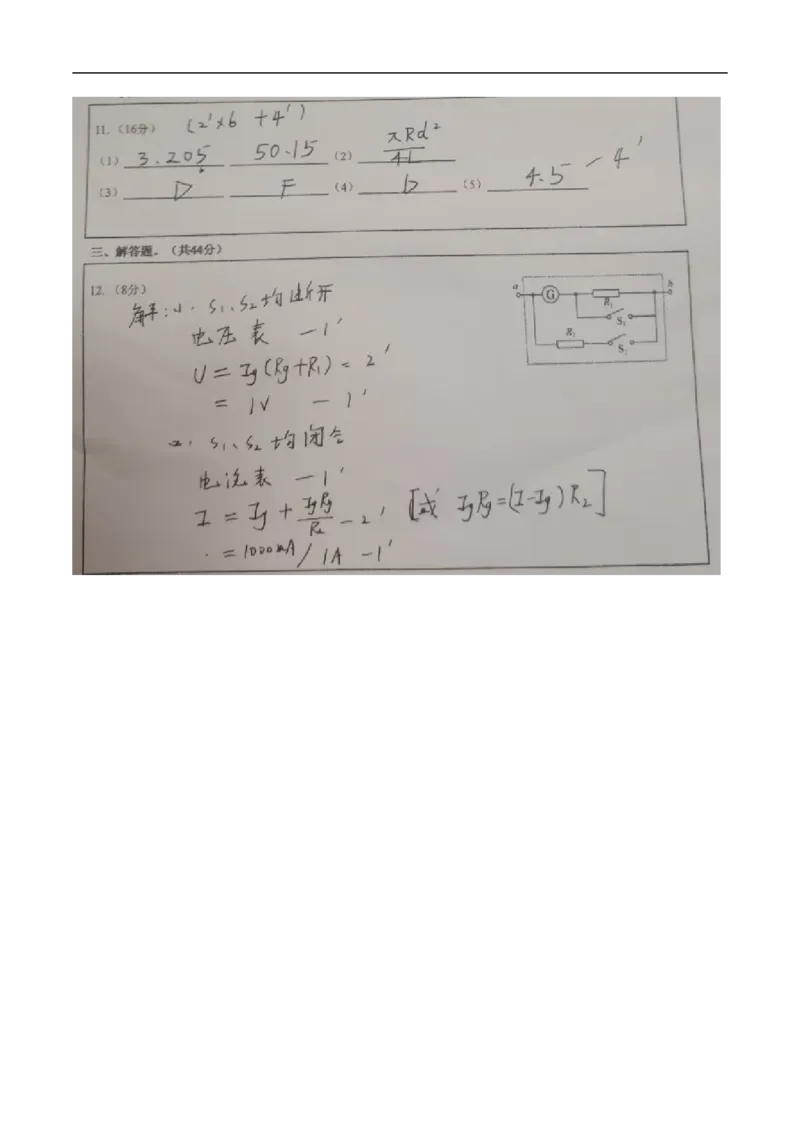 11.（16分） (2'×6 +4')
（1） 3.205 50.15 （2） πRd²/4L
（3） D F （4） D （5） 4.5 - 4'
三、解答题。（共44分）
12.（8分）
解:(1). S₁、S₂均断开
电压表 -1'
U = Ig(Rg+R₁) - 2'
= 1V - 1'
(2). S₁、S₂均闭合
电流表 -1'
I = Ig + IgRg/R₂ - 2' [或 IgRg=(I-Ig)R₂]
= 1000mA/1A -1'
a G R₁ b
S₁
R₂
S